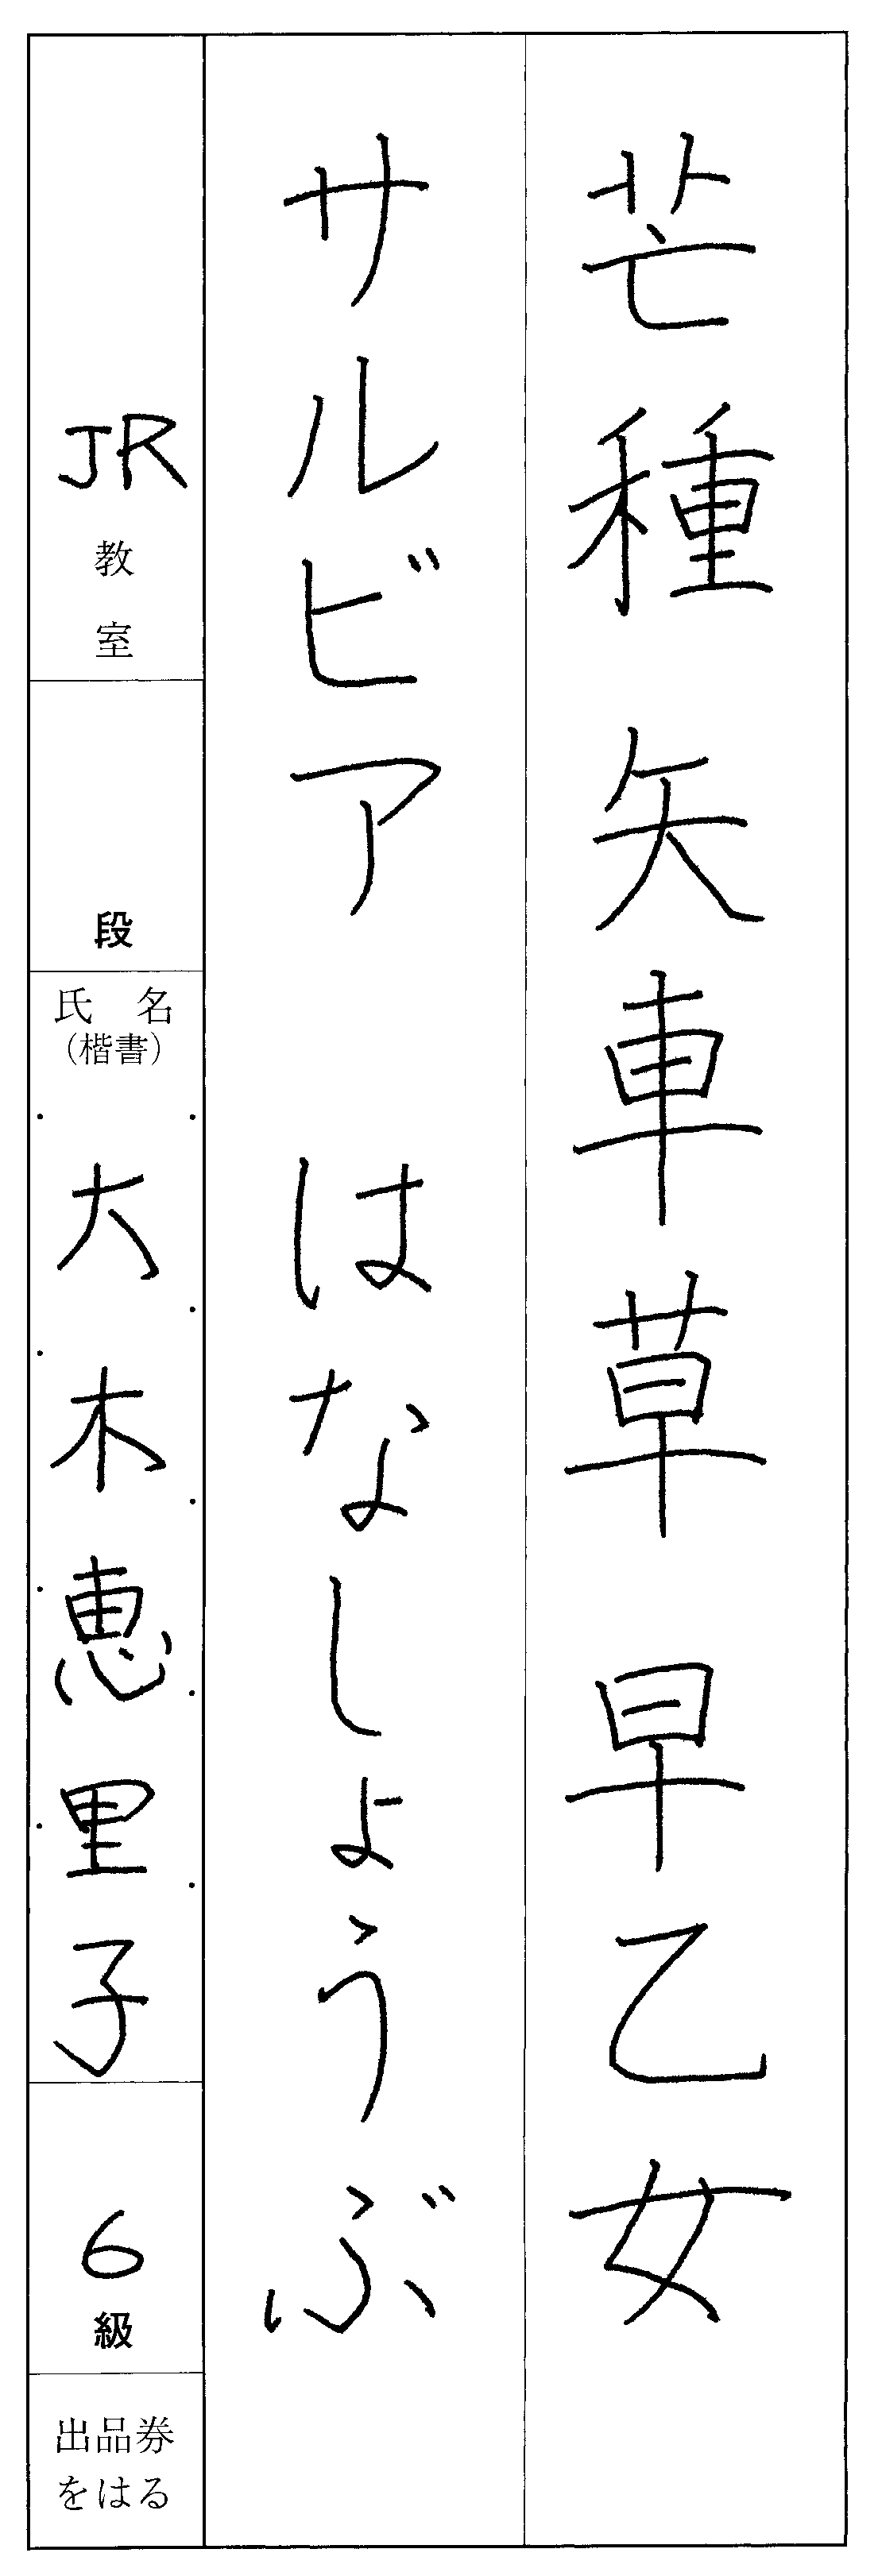 芒種 矢車草 早乙女
サルビア はなしょうぶ
JR
教室
段
氏名
(楷書)
大木恵里子
6
級
出品券
をはる